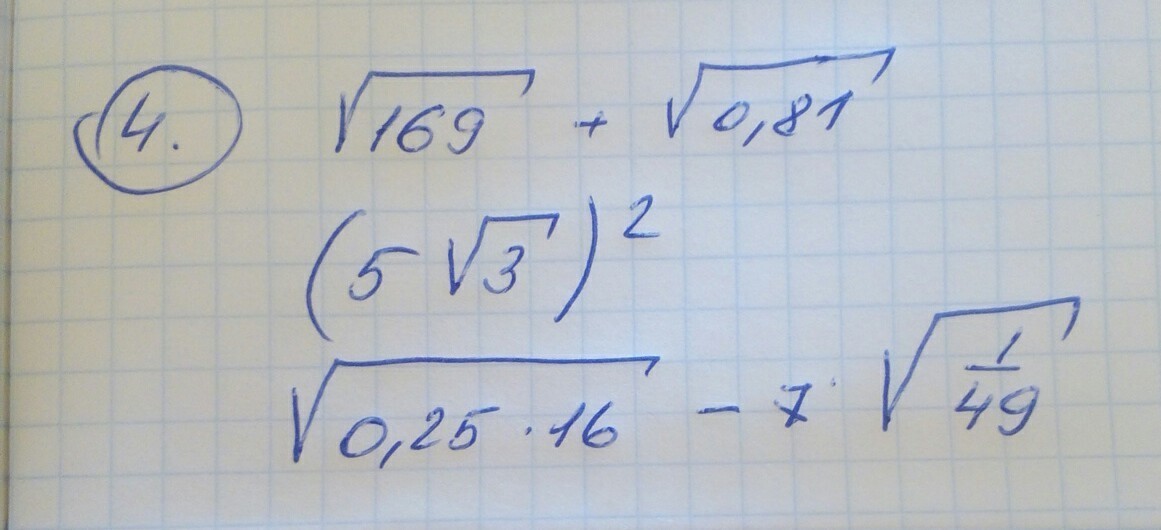 4. √169 + √0,81
(5√3)²
√0,25·16 - 7·√1/49